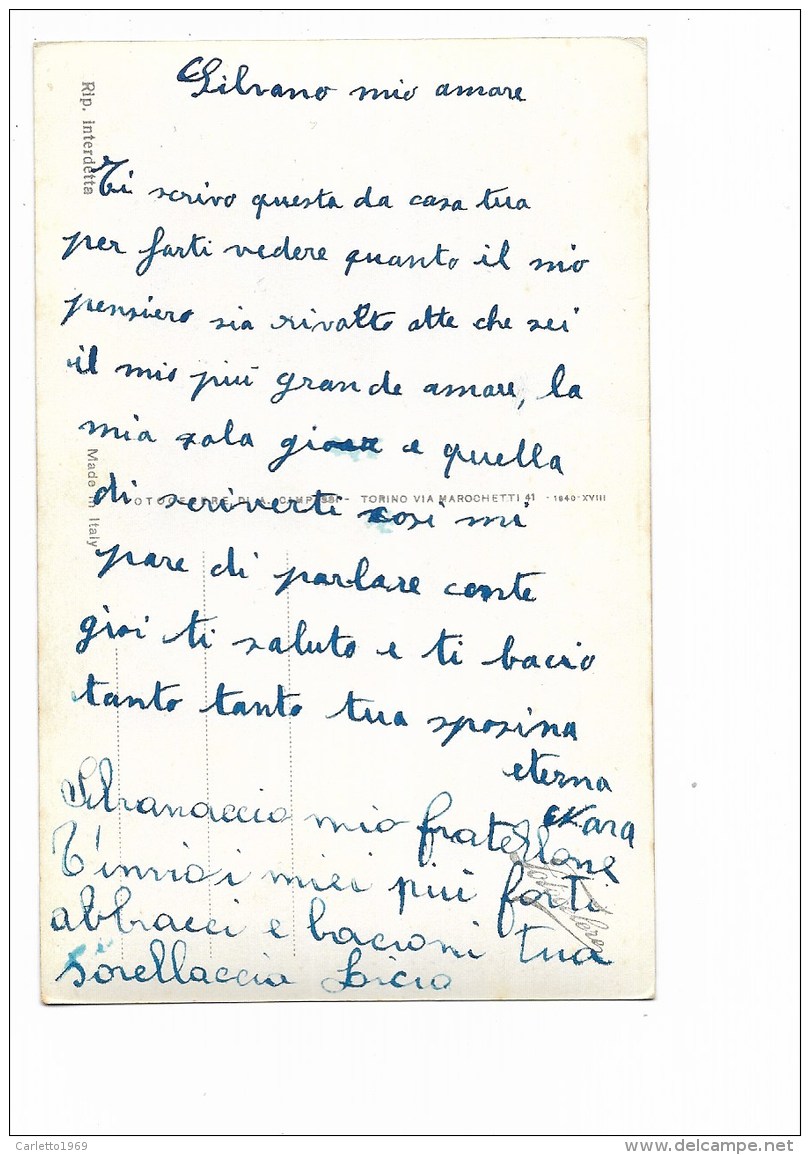 Silvano mio amore
Ti scrivo questa da casa tua
per farti vedere quanto il mio
pensiero sia rivolto atte che sei
il mio più grande amore, la
mia sola e quella
di scriverti così mi
pare di parlare conte
ti saluto e ti bacio
tanto tanto tua sposina
eterna
Mara
Silvanaccio mio fratellone
T'invio i miei più forti
abbracci e bacioni tua
sorellaccia Licia
Rip. interdetta
Made in Italy
FOTOCELERE DI A. CAMPASSI - TORINO VIA MAROCHETTI 41 - 1940-XVIII
Carletto1969
www.delcampe.net